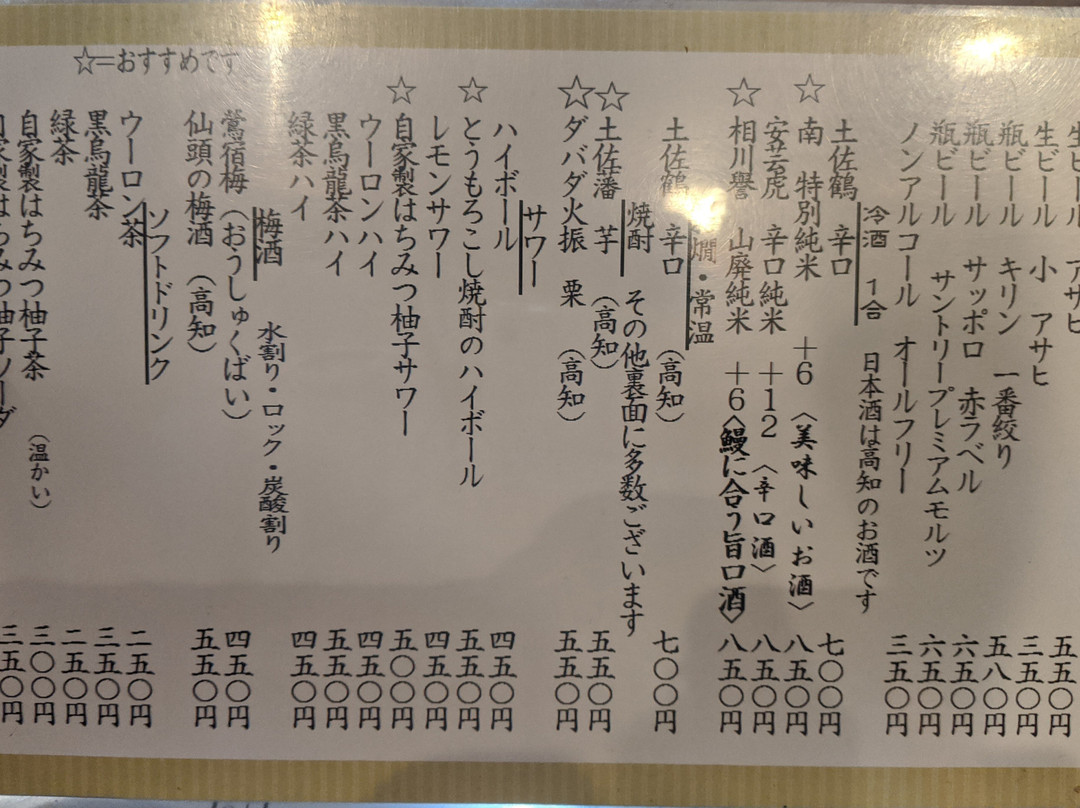 生ビール アサヒ 五五〇円
生ビール 小 アサヒ 三五〇円
瓶ビール キリン 一番絞り 五八〇円
瓶ビール サッポロ 赤ラベル 六五〇円
瓶ビール サントリープレミアムモルツ 六五〇円
ノンアルコール オールフリー 三五〇円
冷酒 1合 日本酒は高知のお酒です
土佐鶴 辛口 七〇〇円
☆南 特別純米 +6 〈美味しいお酒〉 八五〇円
安芸虎 辛口純米 +12 〈辛口酒〉 八五〇円
☆相川誉 山廃純米 +6〈鰻に合う旨口酒〉 八五〇円
燗・常温
土佐鶴 辛口 (高知) 七〇〇円
焼酎 その他裏面に多数ございます
☆土佐藩 芋 (高知) 五五〇円
☆ダバダ火振 栗 (高知) 五五〇円
サワー
ハイボール 四五〇円
☆とうもろこし焼酎のハイボール 五五〇円
レモンサワー 四五〇円
☆自家製はちみつ柚子サワー 五〇〇円
ウーロンハイ 四五〇円
黒烏龍茶ハイ 五五〇円
緑茶ハイ 四五〇円
梅酒 水割り・ロック・炭酸割り
鶯宿梅(おうしゅくばい) 四五〇円
仙頭の梅酒 (高知) 五五〇円
ソフトドリンク
ウーロン茶 二五〇円
黒烏龍茶 三五〇円
緑茶 二五〇円
自家製はちみつ柚子茶 (温かい) 三〇〇円
自家製はちみつ柚子ソーダ 三五〇円
☆=おすすめです